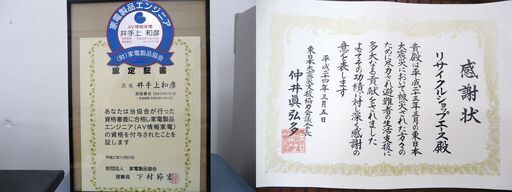 家電製品エンジニア
AV情報家電
井手上 和彦
(財)家電製品協会
認定証書
氏名 井手上和彦
あなたは当協会が行った
資格審査に合格し家電製品
エンジニア(AV情報家電)
の資格を付与されたことを
証します
平成21年10月01日
財団法人 家電製品協会
理事長 下村節宏
感謝状
リサイクルショップエース殿
貴殿は平成二十三年三月の東日本
大震災において被災された方々の
ために尽力され避難者の生活支援に
多大なる貢献をされました
よってその功績に対し深く感謝の
意を表します
平成二十四年三月五日
仲井眞弘多